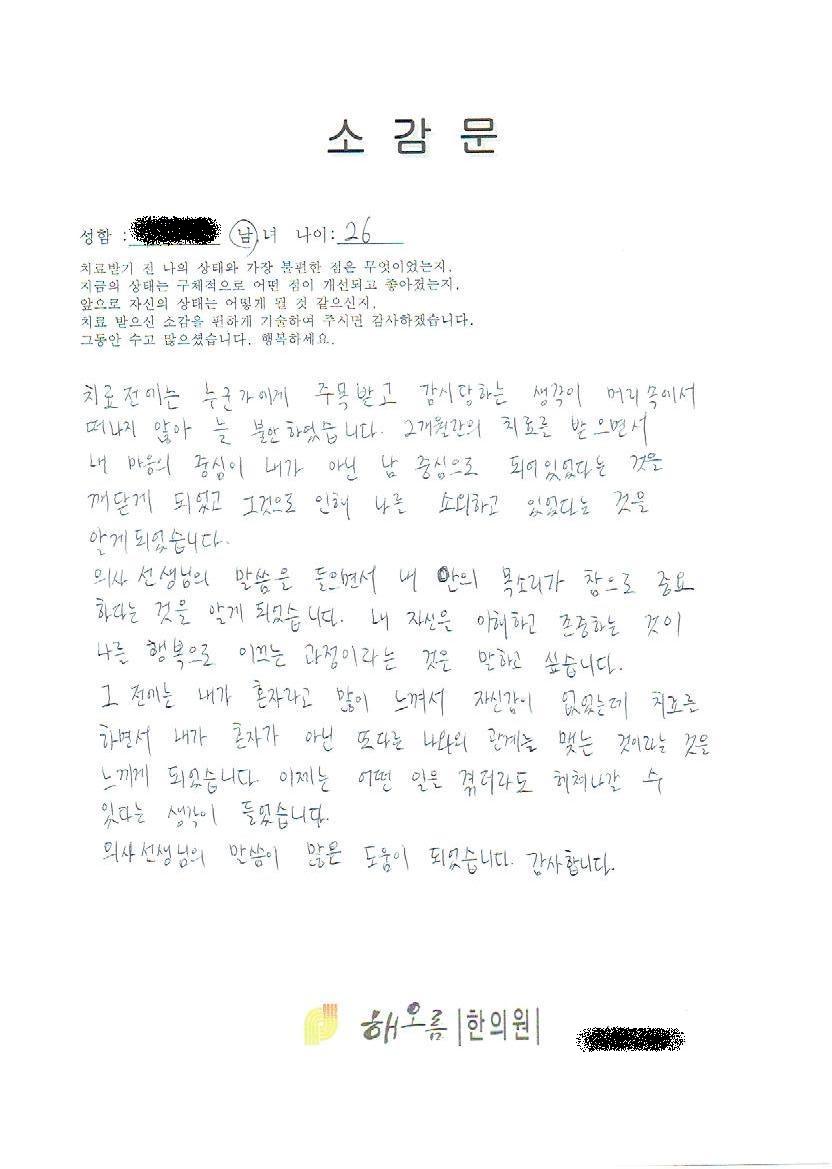 소 감 문
성함 : 남.녀 나이: 26
치료받기 전 나의 상태와 가장 불편한 점은 무엇이었는지.
지금의 상태는 구체적으로 어떤 점이 개선되고 좋아졌는지.
앞으로 자신의 상태는 어떻게 될 것 같으신지.
치료 받으신 소감을 편하게 기술하여 주시면 감사하겠습니다.
그동안 수고 많으셨습니다. 행복하세요.
치료 전에는 누군가에게 주목받고 감시당하는 생각이 머리 속에서
떠나지 않아 늘 불안하였습니다. 2개월간의 치료를 받으면서
내 마음의 중심이 내가 아닌 남 중심으로 되어있었다는 것을
깨닫게 되었고 그것으로 인해 나를 소외하고 있었다는 것을
알게되었습니다.
의사 선생님의 말씀을 들으면서 내 안의 목소리가 참으로 중요
하다는 것을 알게 되었습니다. 내 자신을 이해하고 존중하는 것이
나를 행복으로 이끄는 과정이라는 것을 말하고 싶습니다.
그 전에는 내가 혼자라고 많이 느껴서 자신감이 없었는데 치료를
하면서 내가 혼자가 아닌 또다른 나와의 관계를 맺는 것이라는 것을
느끼게 되었습니다. 이제는 어떤 일을 겪더라도 헤쳐나갈 수
있다는 생각이 들었습니다.
의사선생님의 말씀이 많은 도움이 되었습니다. 감사합니다.
해오름 |한의원|